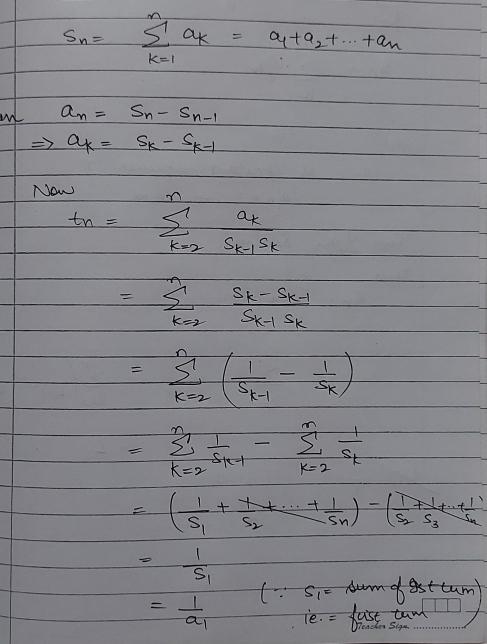 Sn = Σ_{k=1}^{n} ak = a1+a2+...+an
an = Sn - Sn-1
⇒ ak = Sk - Sk-1
Now
tn = Σ_{k=2}^{n} ak / (Sk-1 Sk)
= Σ_{k=2}^{n} (Sk - Sk-1) / (Sk-1 Sk)
= Σ_{k=2}^{n} (1/Sk-1 - 1/Sk)
= Σ_{k=2}^{n} 1/Sk-1 - Σ_{k=2}^{n} 1/Sk
= (1/S1 + 1/S2 + ... + 1/Sn) - (1/S2 + 1/S3 + ... + 1/Sn)
= 1/S1
= 1/a1 (∵ S1 = sum of 1st term)
ie. = first term
Teacher Sign ..................